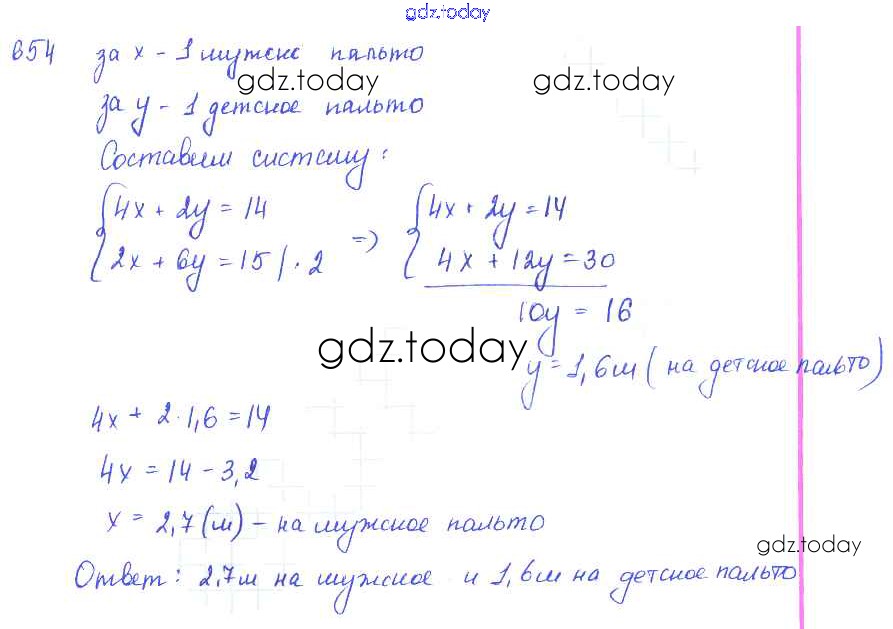 gdz.today
654 за x - 1 мужско пальто
gdz.today gdz.today
за y - 1 детское пальто
Составим систему:
4x + 2y = 14 4x + 2y = 14
2x + 6y = 15 | · 2 => 4x + 12y = 30
10y = 16
gdz.today
y = 1,6 м (на детское пальто)
4x + 2 · 1,6 = 14
4x = 14 - 3,2
x = 2,7 (м) - на мужское пальто
gdz.today
Ответ: 2,7м на мужское и 1,6м на детское пальто